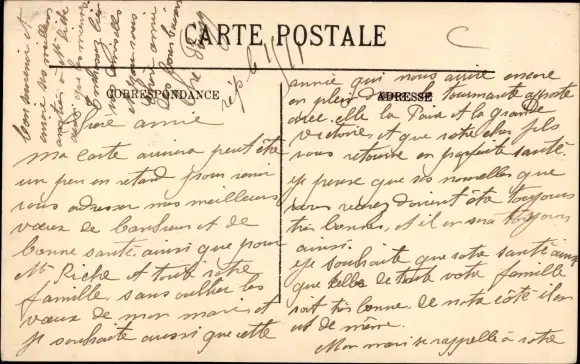 CARTE POSTALE
CORRESPONDANCE
ADRESSE
Chère amie
ma carte arrivera peut être
un peu en retard pour venir
vous adresser mes meilleurs
vœux de bonheur et de
bonne santé ainsi que pour
Mr Riche et toute votre
famille, sans oublier les
vœux de mon mari et
je souhaite aussi que cette
année qui nous arrive encore
en pleine tourmente apporte
avec elle la Paix et la grande
victoire, et que votre cher fils
vous retourne en parfaite santé.
Je pense que ses nouvelles que
vous recevez doivent être toujours
très bonnes, et il en sera toujours
ainsi.
Je souhaite que votre santé ainsi
que celle de toute votre famille
soit très bonne. de notre côté il en
est de même.
Mon mari se rappelle à votre
bon souvenir et
envoie ses meilleurs